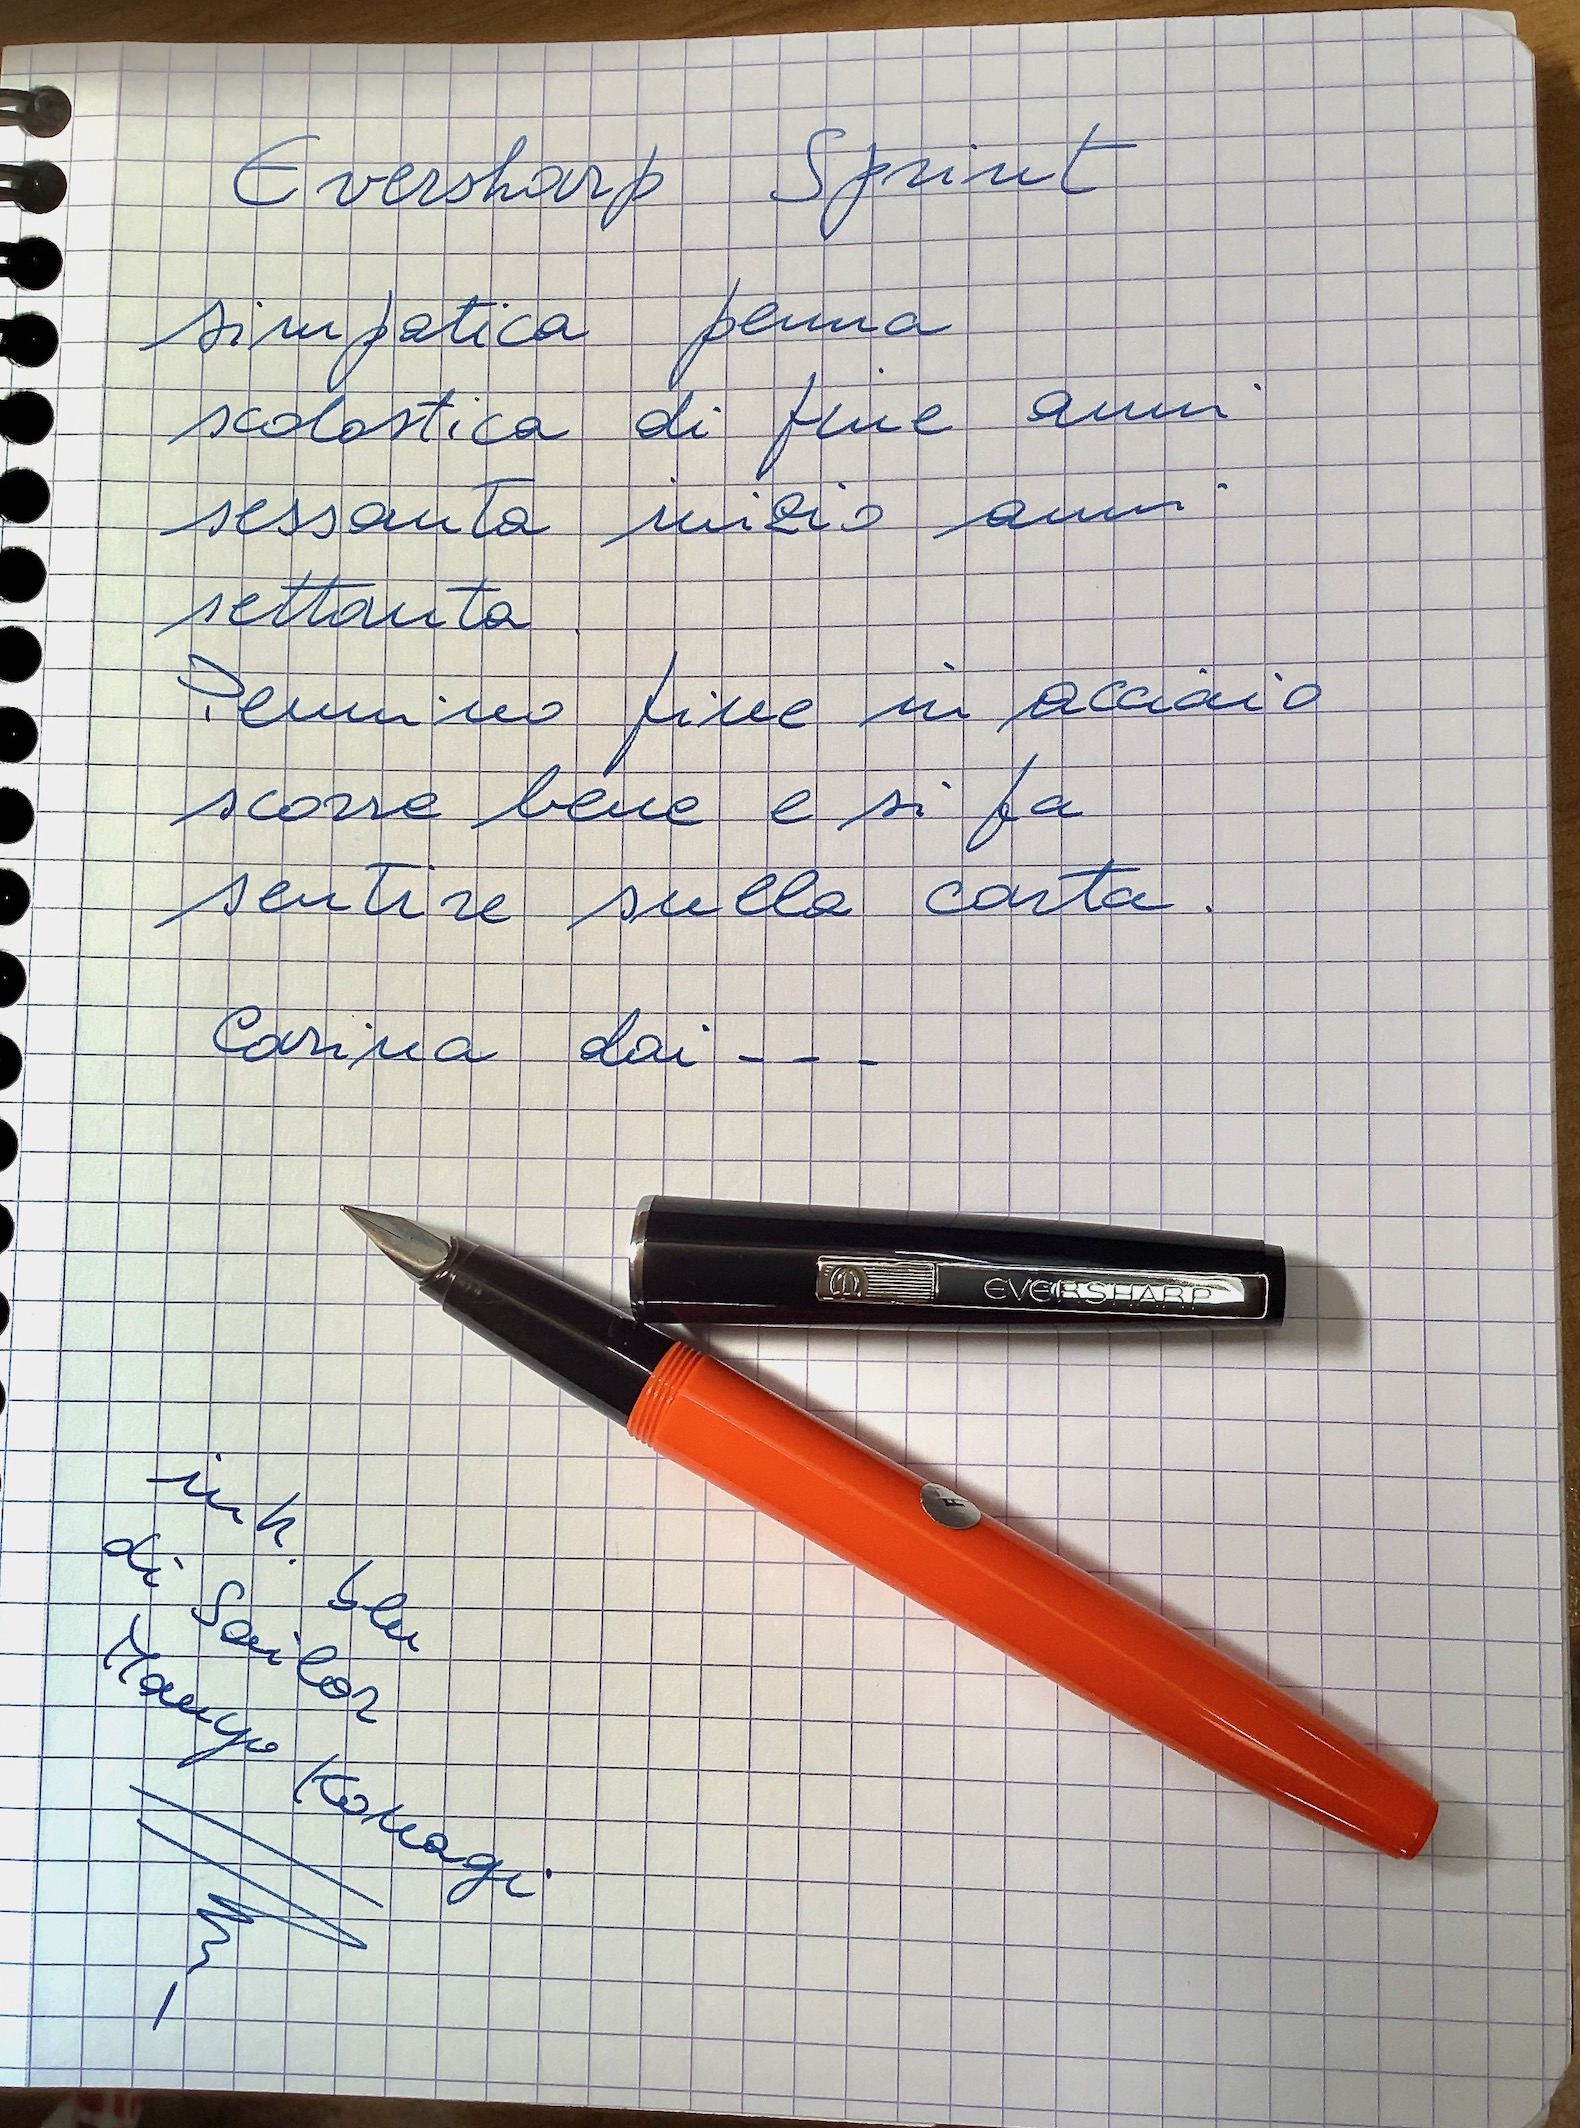 Eversharp Sprint
simpatica penna
scolastica di fine anni
sessanta inizio anni
settanta.
Pennino fine in acciaio
scorre bene e si fa
sentire sulla carta.
Carina dai - - -
EVERSHARP
F
ink. blu
di Sailor
Manyo Konagi